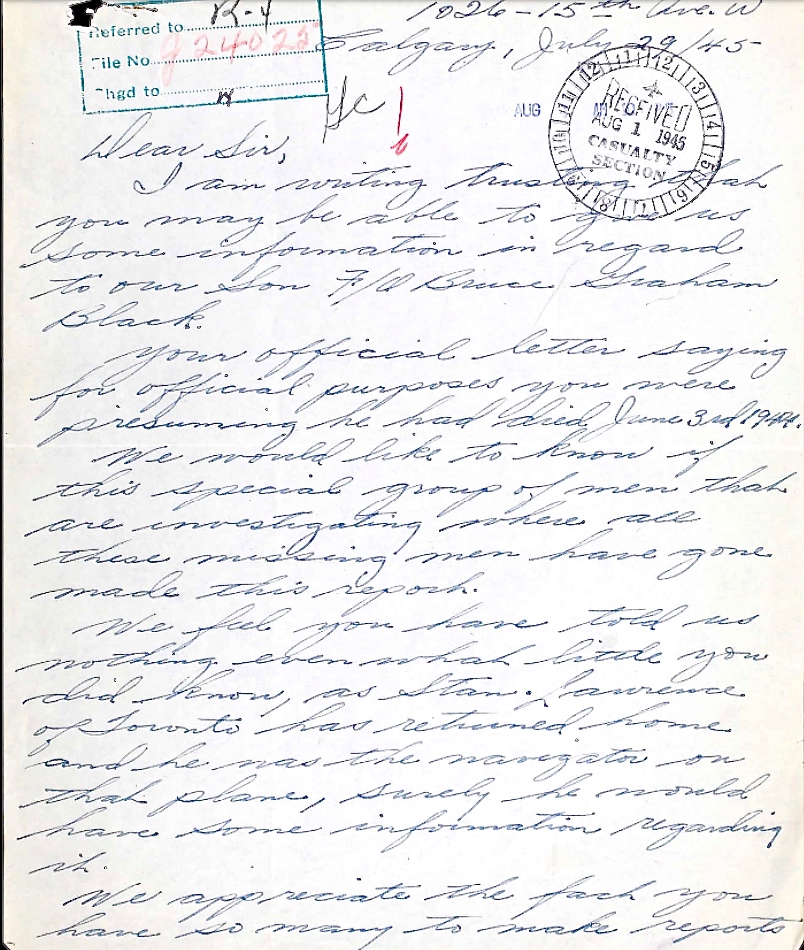 Referred to R-4
File No J24025
Chgd to
1026-15th Ave. W
Calgary, July 29/45
AUG
RECEIVED
AUG 1 1945
CASUALTY
SECTION
Dear Sir,
I am writing trusting that
you may be able to give us
some information in regard
to our Son F/O Bruce Graham
Black.
Your official letter saying
for official purposes you were
presuming he had died June 3rd 1944.
We would like to know if
this special group of men that
are investigating where all
these missing men have gone
made this report.
We feel you have told us
nothing even what little you
did know, as Stan. Lawrence
of Toronto has returned home
and he was the navigator on
that plane, surely he would
have some information regarding
it.
We appreciate the fact you
have so many to make reports